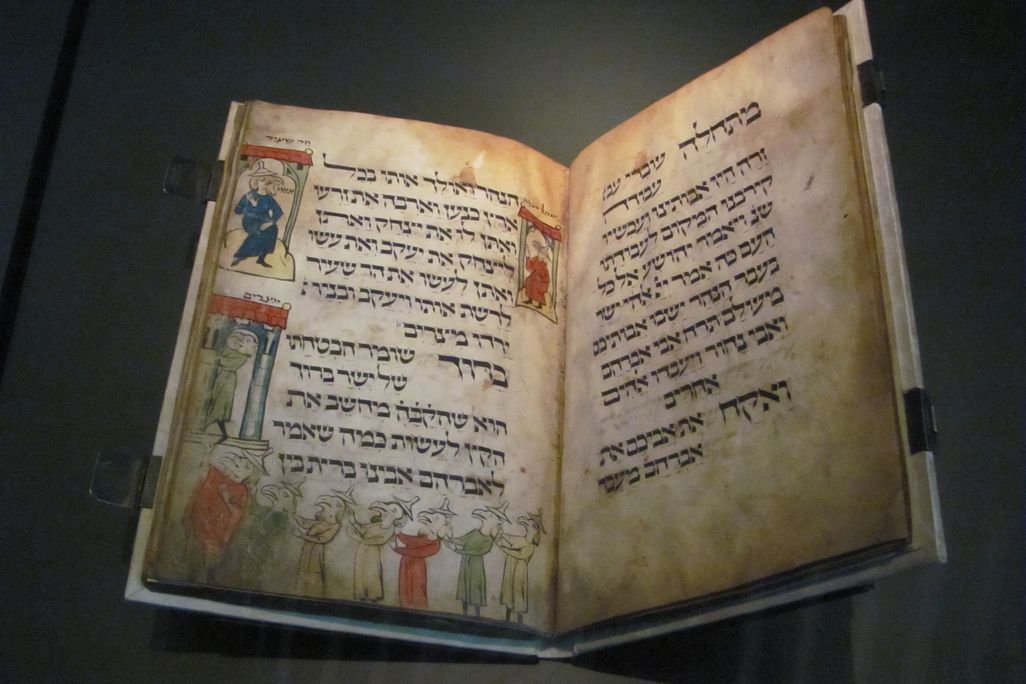 מתחלה עובדי עבו
עבודה
זרה היו אבותינו ועכשיו
קירבנו המקום לעבודתו
שנ' ויאמר יהושע אל כל
העם כה אמר יי אלהי ישר
בעבר הנהר ישבו אבותיכם
מעולם תרח אבי אברהם
ואבי נחור ויעבדו אלהים
אחרים
ואקח את אביכם את
אברהם מעבר
הר שעיר
עשו
הנהר ואולך אותו בכל
ארץ כנען וארבה את זרעו
ואתן לו את יצחק ואתן
ליצחק את יעקב ואת עשו
ואתן לעשו את הר שעיר
לרשת אותו ויעקב ובניו
ירדו מצרים
מצרים
ברוך שומר הבטחתו
של ישר ברוך
הוא שהקבה מחשב את
הקץ לעשות כמה שאמר
לאברהם אבינו ברית בין